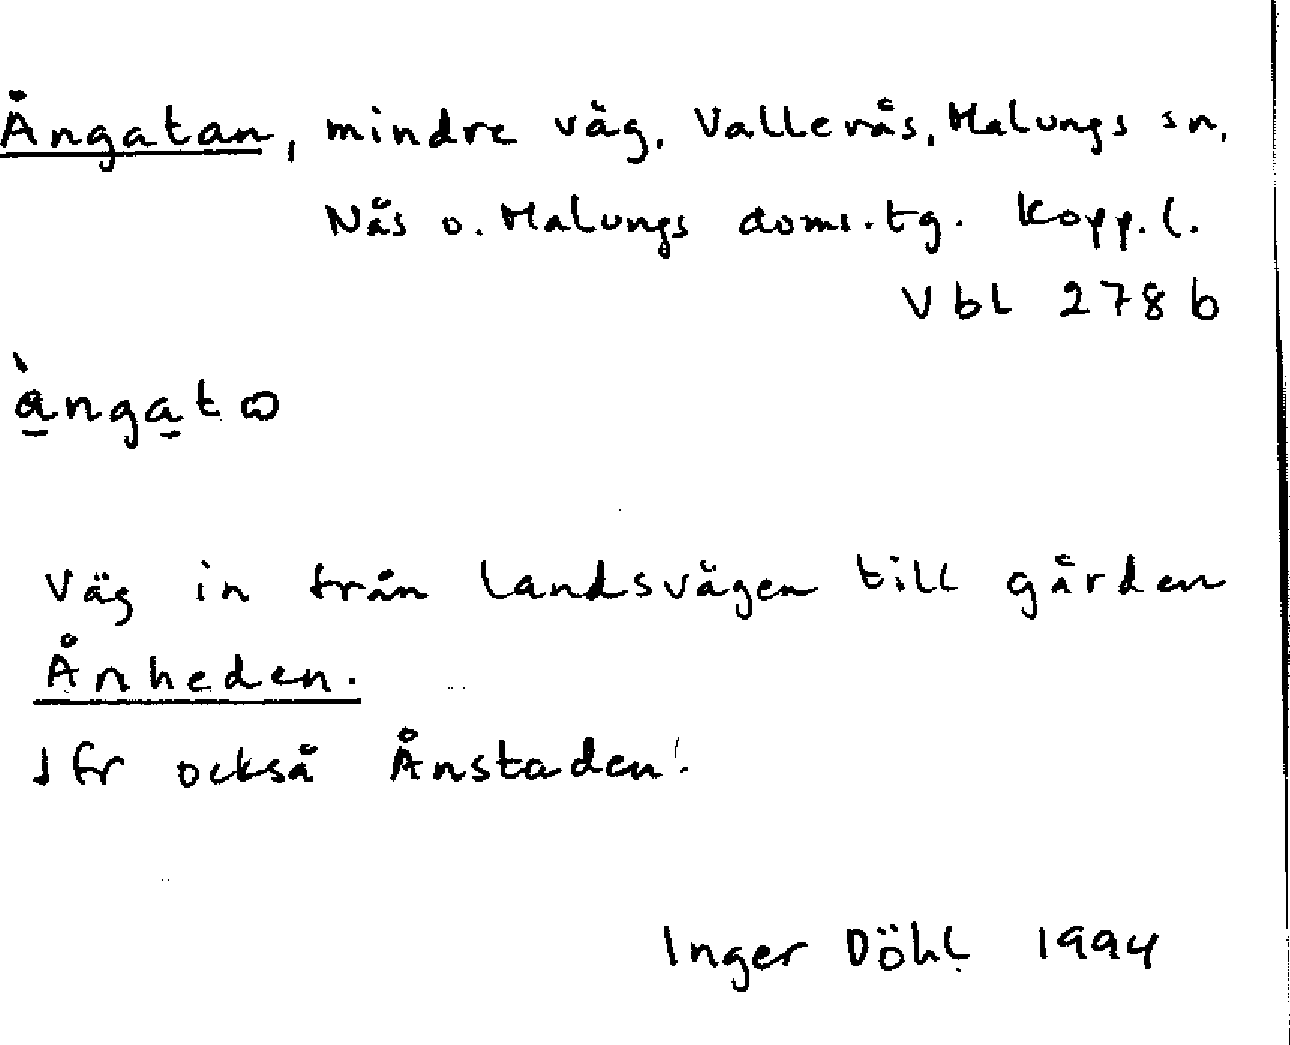 Ångatan, mindre väg, Vallerås, Malungs sn,
Nås o. Malungs doms.tg. Kopp.l.
Vbl 278 b
Väg in från landsvägen till gården
Ånheden.
Jfr också Ånstaden!
Inger Döhl 1994